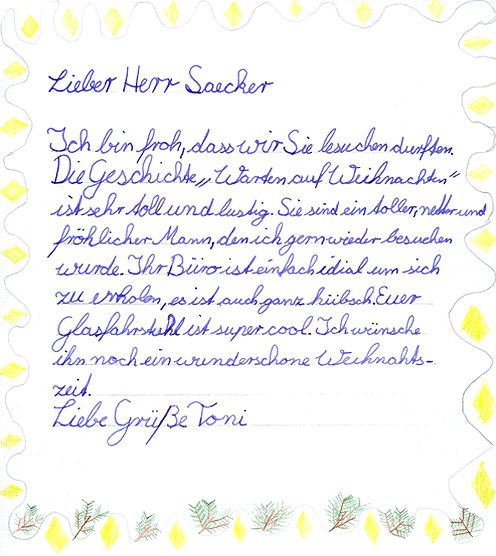 Lieber Herr Saecker
Ich bin froh, dass wir Sie besuchen durften.
Die Geschichte „Warten auf Weihnachten"
ist sehr toll und lustig. Sie sind ein toller, netter und
fröhlicher Mann, den ich gern wieder besuchen
wurde. Ihr Büro ist einfach idial um sich
zu erholen, es ist auch ganz hübsch. Euer
Glasfahrstuhl ist super cool. Ich wünsche
ihn noch ein wunderschone Weihnahts-
zeit.
Liebe Grüße Toni